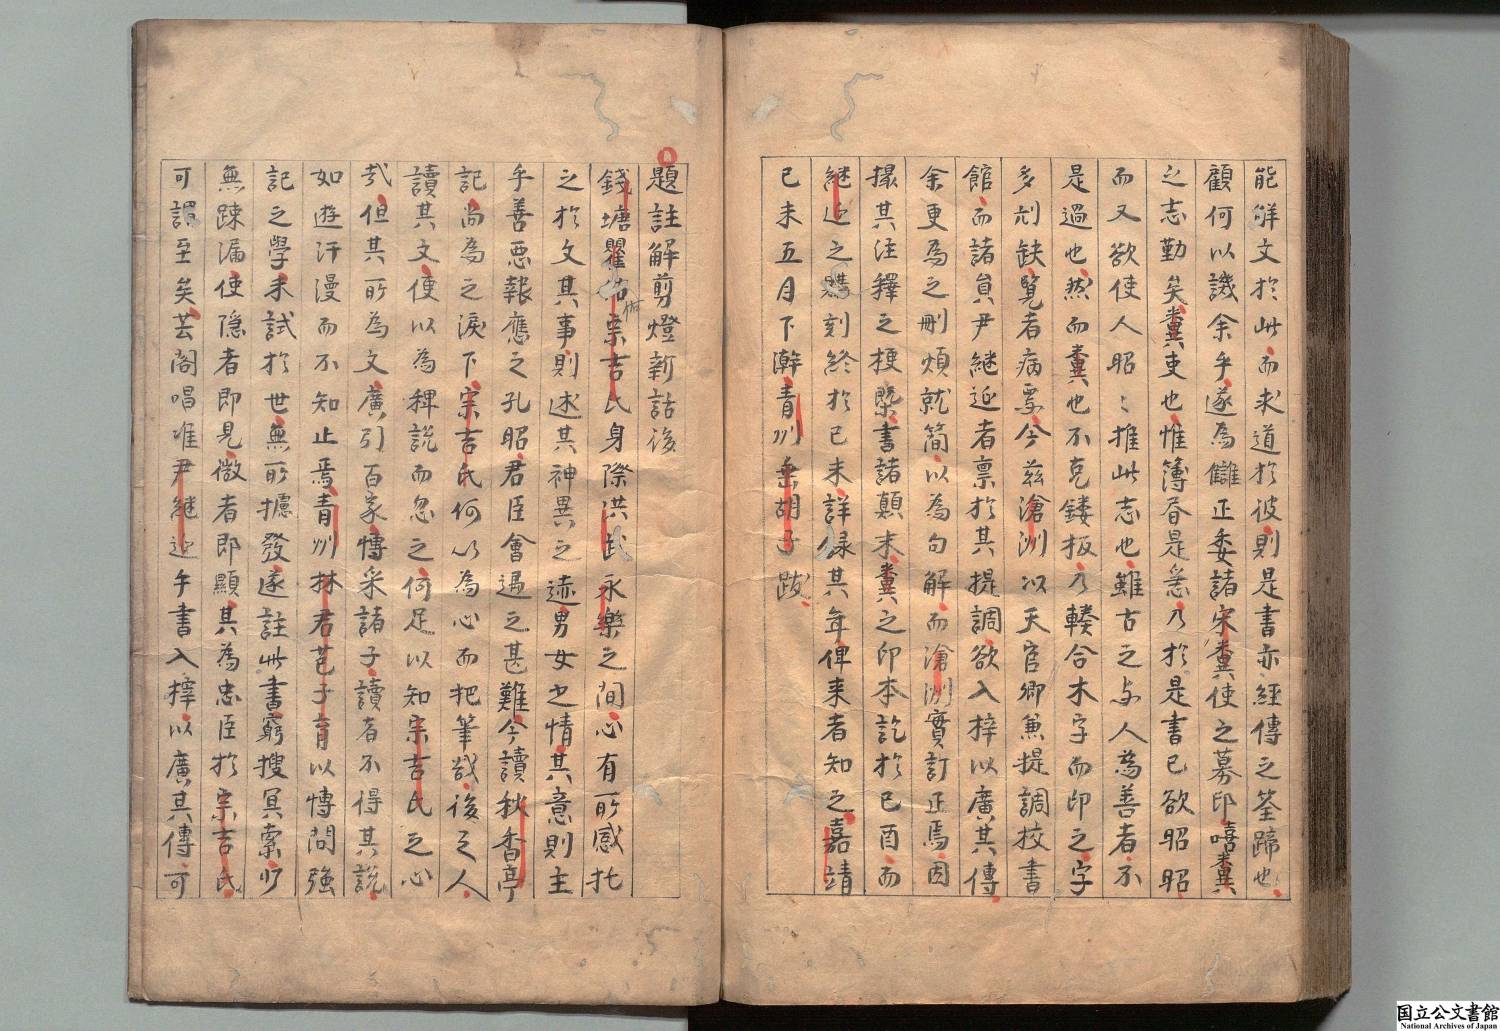 能觧文於此而求道於彼則是書亦經傳之筌蹄也
顧何以譏余乎遂爲讎正委諸宋糞使之募印嘻糞
之志勤矣糞吏也惟簿昏是急乃於是書已欲昭昭
而又欲使人昭〻推此志也雖古之与人為善者不
是過也然而糞也不克鏤板乃轃合木字而印之字
多刓缺覽者病焉今茲滄洲以天官卿兼提調校書
館而諸員尹継延者禀於其提調欲入梓以廣其傳
余更為之刪煩就簡以為句解而滄洲實訂正焉因
撮其注釋之梗槩書諸顛末糞之印本訖於己酉而
継延之購刻終於己未詳録其年俾来者知之嘉靖
己未五月下澣青州垂胡子跋
題註解剪燈新話後
錢塘瞿佑宗吉氏身際洪武永樂之間心有所感托
之於文其事則述其神異之迹男女之情其意則主
乎善惡報應之孔昭君臣會遇之甚難今讀秋香亭
記尚為之淚下宗吉氏何以為心而把筆哉後之人
讀其文便以為稗說而忽之何足以知宗吉氏之心
哉但其所為文廣引百家慱采諸子讀者不得其說
如遊汗漫而不知止焉青州林君芑子育以慱問強
記之學未試於世無所攄發遂註此書窮搜冥索少
無踈漏使隱者即見微者即顯其為忠臣於宗吉氏
可謂至矣芸閣唱准尹継延乎書入擇以廣其傳可
国立公文書館
National Archives of Japan